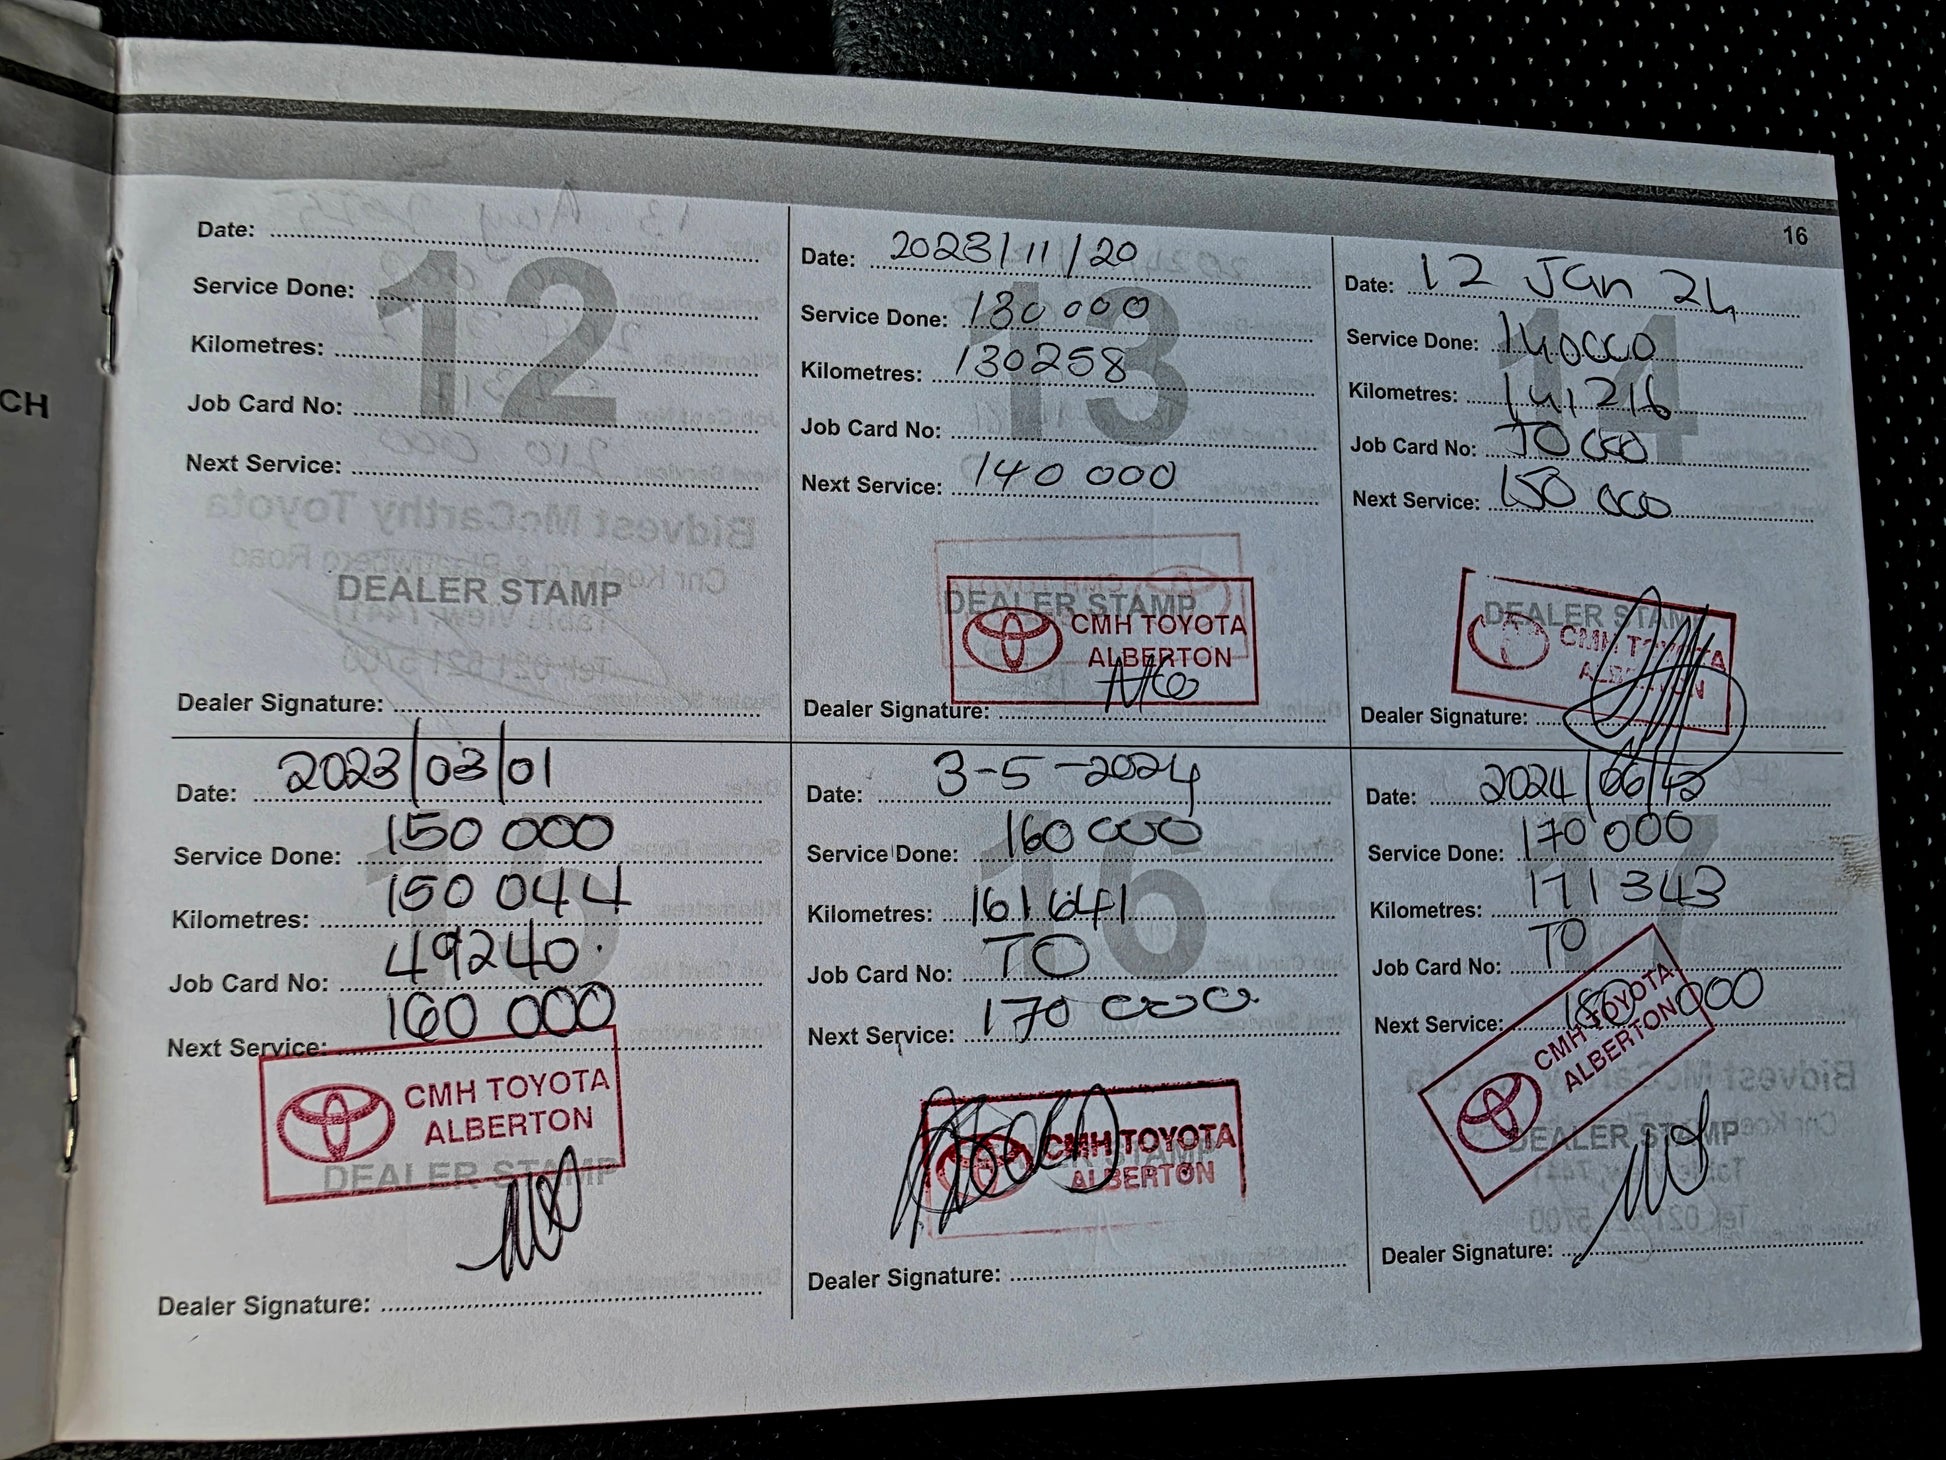 CH
16
Date:
Service Done:
Kilometres:
Job Card No:
Next Service:
12
DEALER STAMP
Dealer Signature:
Date: 2023/11/20
Service Done: 130 000
Kilometres: 130258
Job Card No:
Next Service: 140 000
13
DEALER STAMP
CMH TOYOTA
ALBERTON
Dealer Signature:
Date: 12 Jan 24
Service Done: 140000
Kilometres: 141216
Job Card No:
Next Service: 150 000
14
DEALER STAMP
CMH TOYOTA
ALBERTON
Dealer Signature:
Date: 2023/03/01
Service Done: 150 000
Kilometres: 150 044
Job Card No: 49240
Next Service: 160 000
15
CMH TOYOTA
ALBERTON
DEALER STAMP
Dealer Signature:
Date: 3-5-2024
Service Done: 160 000
Kilometres: 161 641
Job Card No: TO
Next Service: 170 000
16
CMH TOYOTA
ALBERTON
Dealer Signature:
Date: 2024/06/12
Service Done: 170 000
Kilometres: 171 343
Job Card No: TO
Next Service: 180 000
17
CMH TOYOTA
ALBERTON
DEALER STAMP
Dealer Signature: